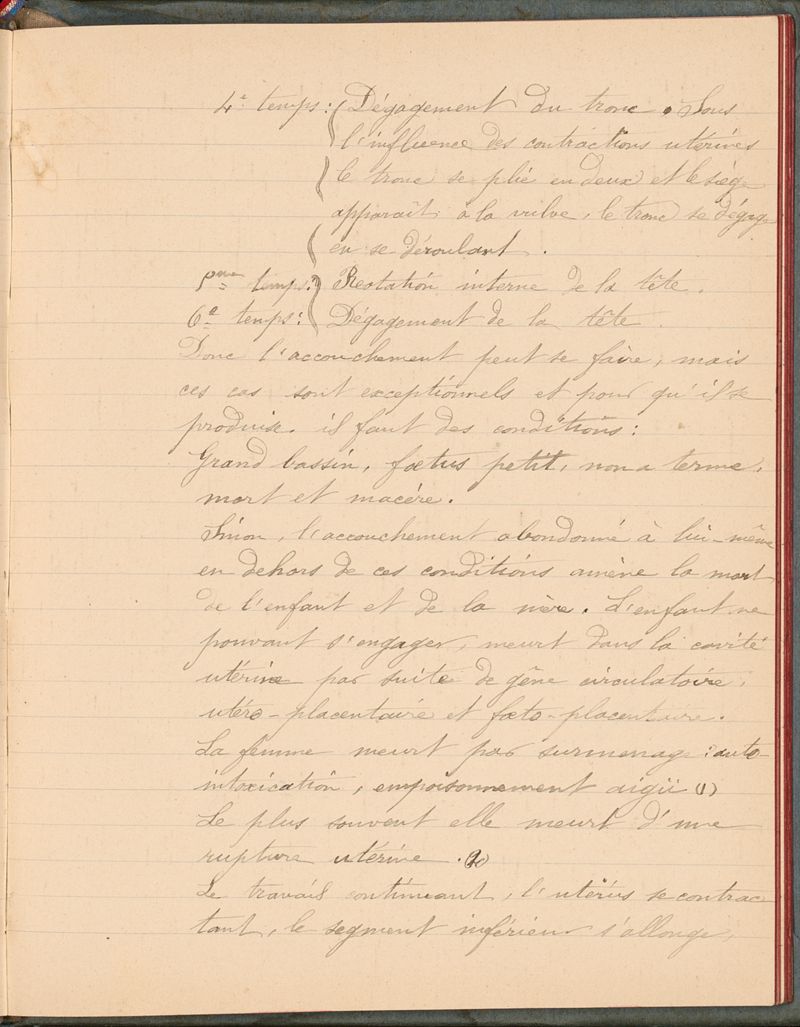 4e temps : Dégagement du tronc. Sous
l'influence des contractions utérines
le tronc se plie en deux et le siège
apparaît à la vulve, le tronc se dégage
en se déroulant.
5me temps : Rotation interne de la tête.
6e temps : Dégagement de la tête.
Donc l'accouchement peut se faire, mais
ces cas sont exceptionnels et pour qu'il se
produise. il faut des conditions :
Grand bassin, fœtus petit, non a terme,
mort et macéré.
Sinon, l'accouchement abondonné à lui-même
en dehors de ces conditions amène la mort
de l'enfant et de la mère. L'enfant ne
pouvant s'engager, meurt dans la cavité
utérine par suite de gêne circulatoire,
utéro-placentaire et fœto-placentaire.
La femme meurt par surmenage : auto-
intoxication, empoisonnement aigü (1)
Le plus souvent elle meurt d'une
rupture utérine. (2)
Le travail continuant, l'utérus se contrac
tant, le segment inférieur s'allonge,